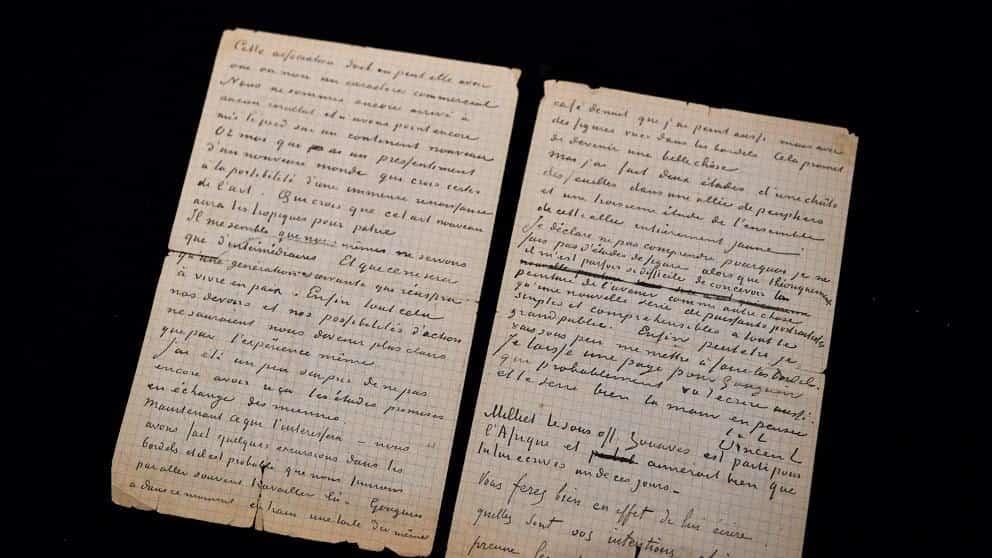 Cette association dont on peut elle avoir
oui ou non un caractère commercial
Nous ne sommes encore arrivé à
aucun resultat et n'avons point encore
mis le pied sur un continent nouveau
Or moi que ai un presentiment
d'un nouveau monde qui crois certes
à la possibilité d'une immense renaissance
de l'art. Que crois que cet art nouveau
aura les tropiques pour patrie
Il me semble que nous mêmes ne servons
que d'intermédiaires Et que ce ne sera
qu'une génération suivante qui réussira
à vivre en paix. Enfin tout cela
nos devoirs et nos possibilités d'action
ne sauraient nous devenir plus clairs
que par l'expérience même
j'ai été un peu surpris de ne pas
encore avoir reçu les études promises
en échange des miennes.
Maintenant ce qui t'interessera – nous
avons fait quelques excursions dans les
bordels et il est probable que nous finirons
par aller souvent travailler là. Gauguin
a dans ce moment en train une toile du même
café de nuit que j'ai peint aussi mais avec
des figures vues dans les bordels Cela promet
de devenir une belle chose
Moi j'ai fait deux études d'une chûte
des feuilles dans une allée de peupliers
et une troisieme étude de l'ensemble
de cette allee entièrement jaune
Je déclare ne pas comprendre pourquoi je ne
fais pas d'études de figure alors que théoriquement
il m'est parfois si difficile de concevoir la
peinture de l'avenir comme autre chose
qu'une nouvelle serie de puissants portraitistes
simples et comprehensibles à tout le
grand public. Enfin peutetre je
vais sous peu me mettre à faire les bordels.
Je laisse une page pour Gauguin
que probablement va t'ecrire aussi.
et te serre bien la main en pensée
Vincent
Milliet le sous off. Zouaves est parti pour
l'Afrique et aimerait bien que
tu lui ecrives un de ces jours –
Vous ferez bien en effet de lui écrire
quelles sont vos intentions